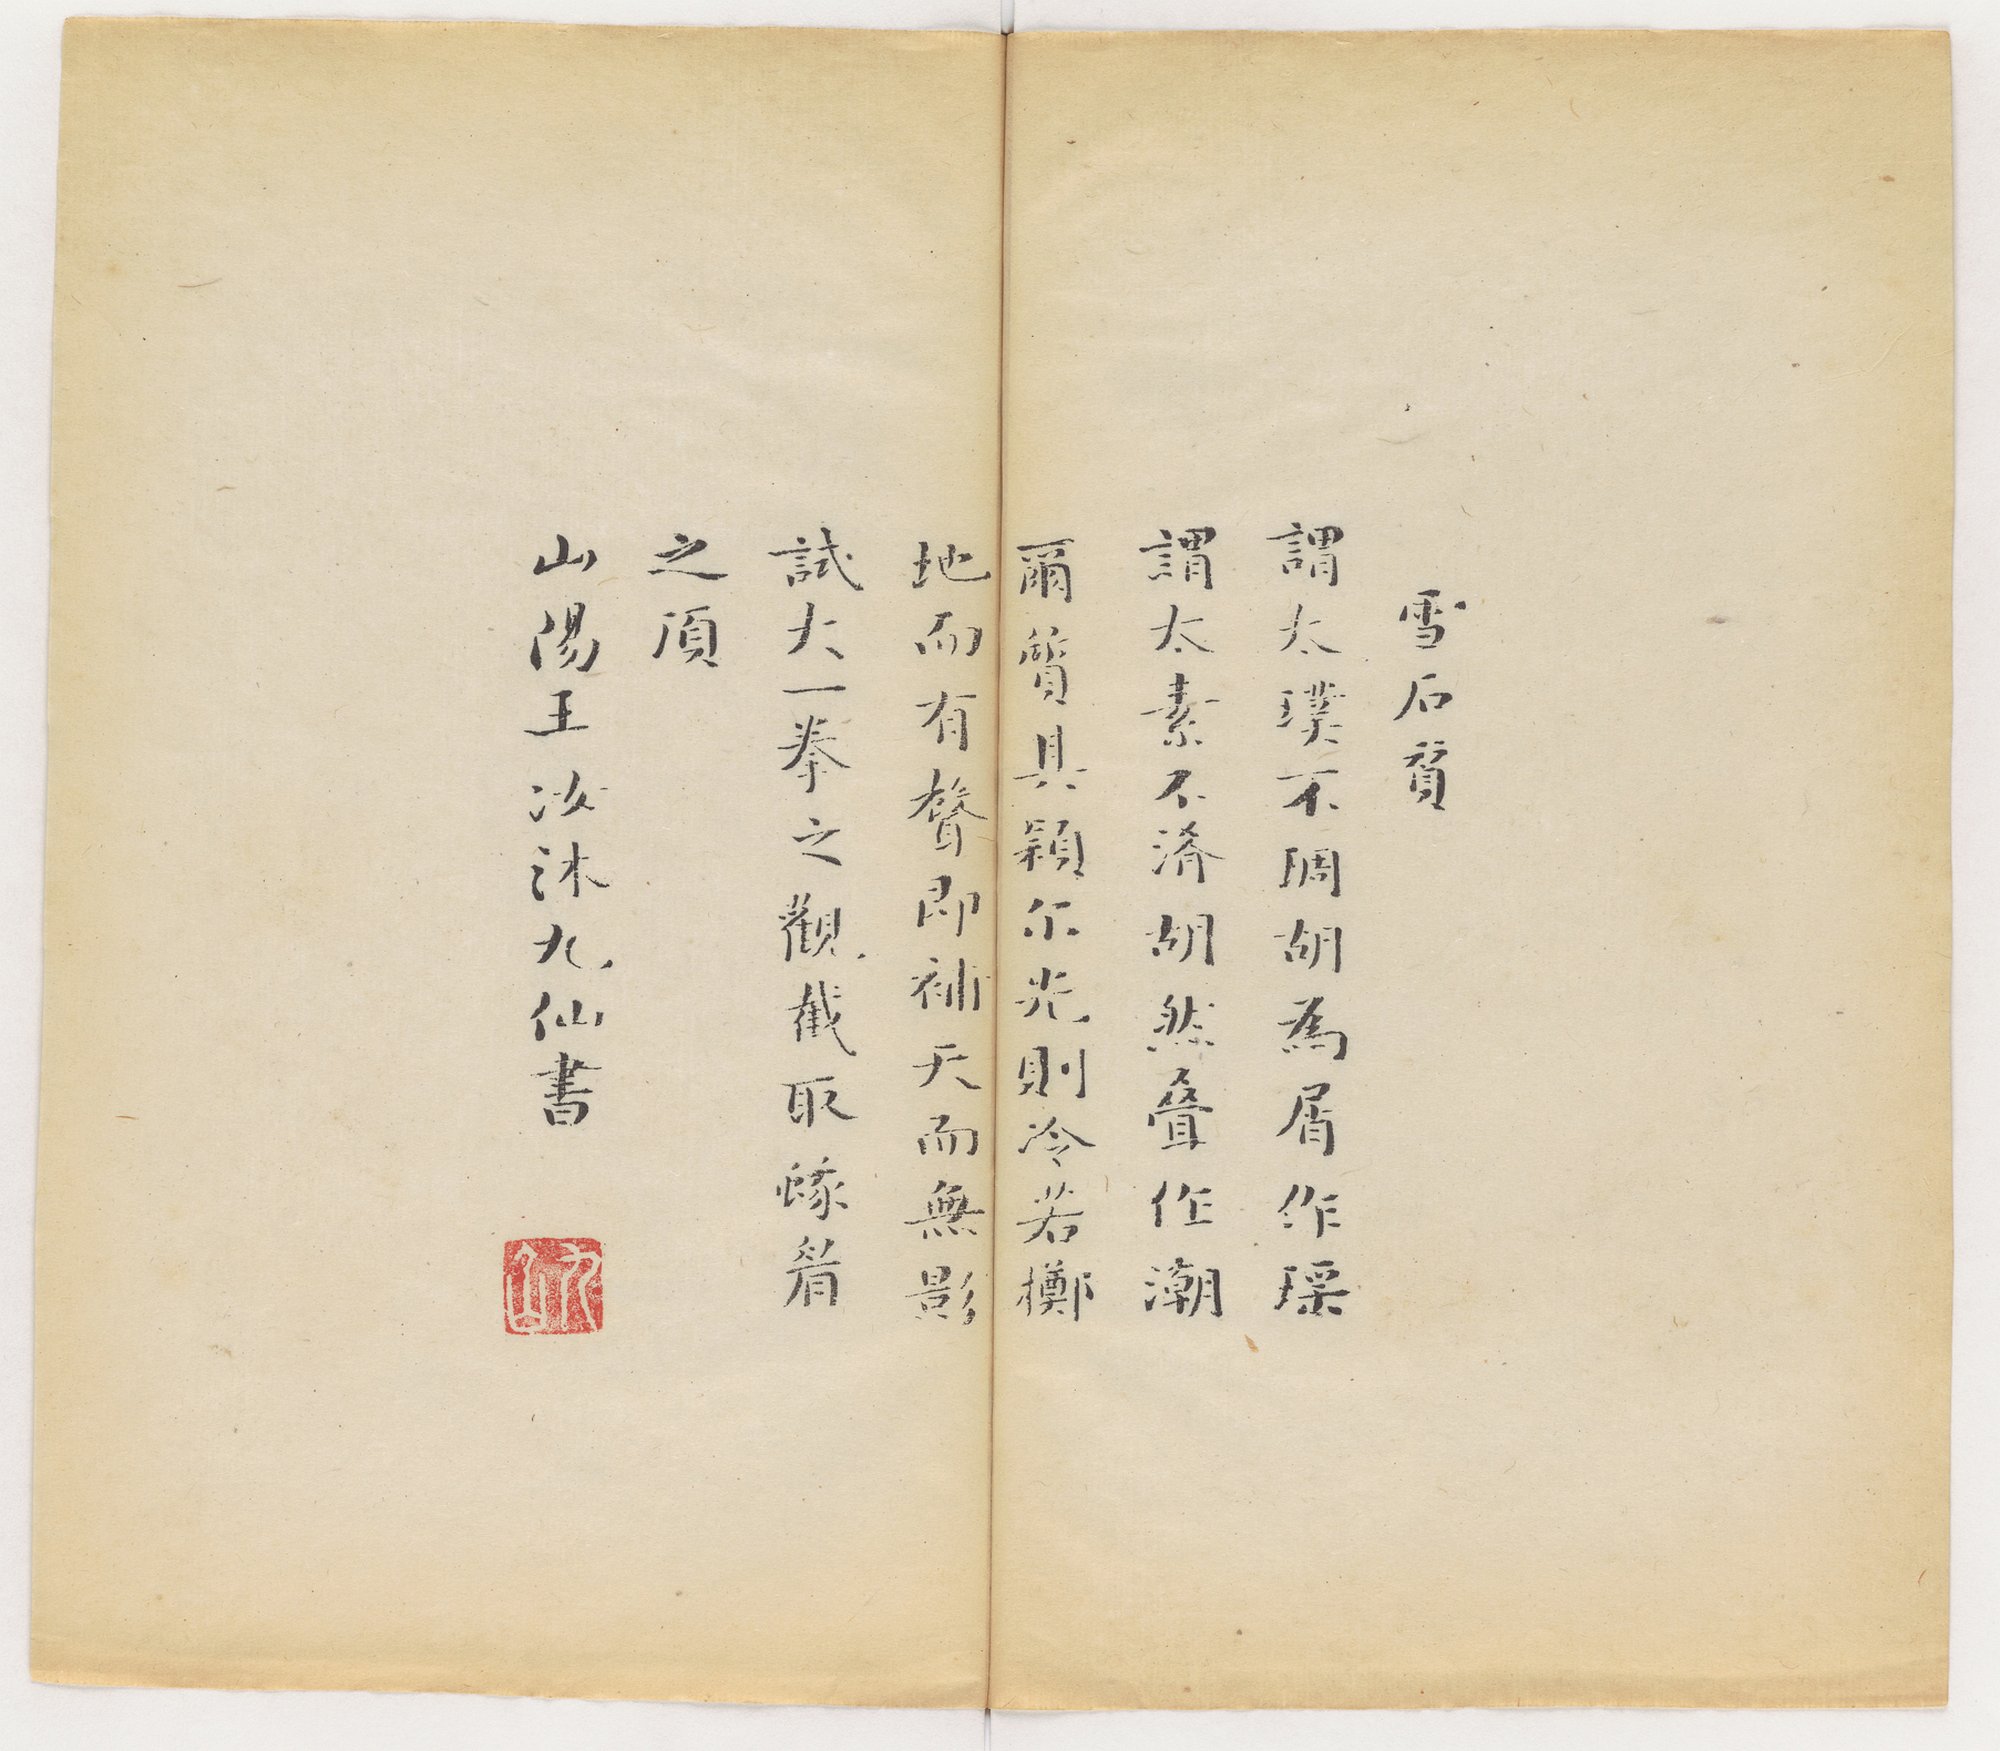 雪石質
謂太璞不琱胡為屑作琛
謂太素不淆胡然叠作潮
爾質其穎尔光則冷若擲
地而有聲即補天而無影
試大一拳之觀截取蛾眉
之頂
山陽王汝沐九仙書
九仙